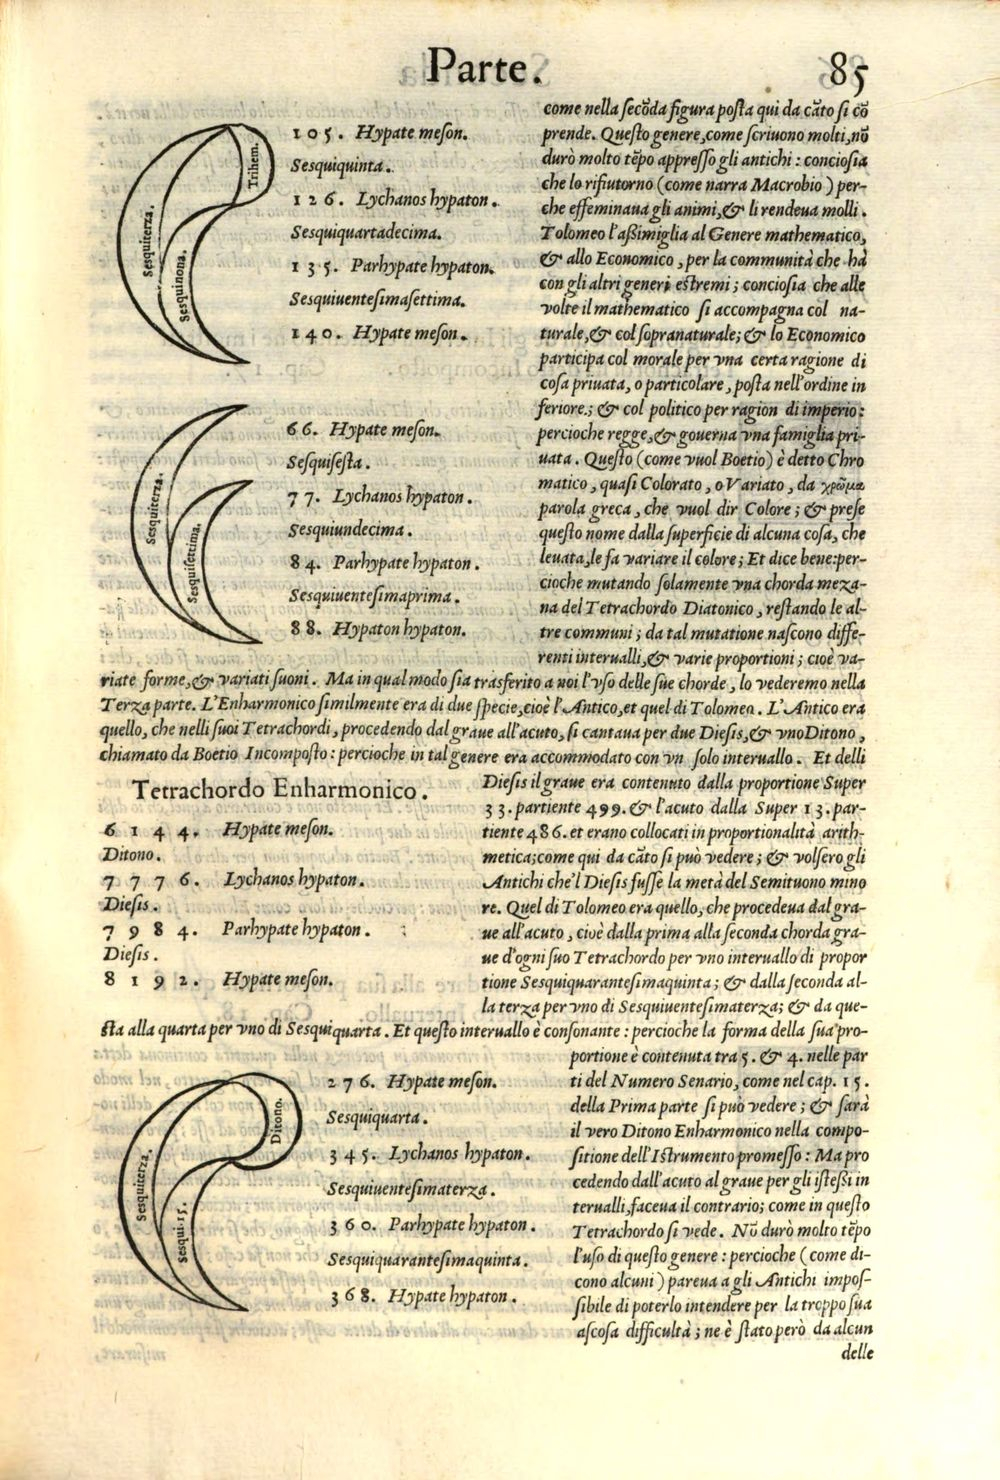 Parte. 85
Trihem.
Sesquiterza.
Sesquinona.
105. Hypate meson.
Sesquiquinta.
126. Lychanos hypaton.
Sesquiquartadecima.
135. Parhypate hypaton.
Sesquiuentesimasettima.
140. Hypate meson.
Sesquiterza.
Sesquisettima.
66. Hypate meson.
Sesquisesta.
77. Lychanos hypaton.
Sesquiundecima.
84. Parhypate hypaton.
Sesquiuentesimaprima.
88. Hypaton hypaton.
come nella secōda figura posta qui da cāto si cō
prende. Questo genere, come scriuono molti, nō
durò molto tēpo appresso gli antichi: conciosia
che lo rifiutorno (come narra Macrobio) per-
che effeminaua gli animi, & li rendeua molli.
Tolomeo l'assimiglia al Genere mathematico,
& allo Economico, per la communità che hà
con gli altri generi estremi; conciosia che alle
volte il mathematico si accompagna col na-
turale, & col sopranaturale; & lo Economico
participa col morale per vna certa ragione di
cosa priuata, o particolare, posta nell'ordine in
feriore.; & col politico per ragion di imperio:
percioche regge, & gouerna vna famiglia pri-
uata. Questo (come vuol Boetio) è detto Chro
matico, quasi Colorato, o Variato, da χρῶμα
parola greca, che vuol dir Colore; & prese
questo nome dalla superficie di alcuna cosa, che
leuata, le fa variare il colore; Et dice bene: per-
cioche mutando solamente vna chorda meza-
na del Tetrachordo Diatonico, restando le al-
tre communi; da tal mutatione nascono diffe-
renti interualli, & varie proportioni; cioè va-
riate forme, & variati suoni. Ma in qual modo sia trasferito a noi l'vso delle sue chorde, lo vederemo nella
Terza parte. L'Enharmonico similmente era di due specie, cioè l'Antico, et quel di Tolomeo. L'Antico era
quello, che nelli suoi Tetrachordi, procedendo dal graue all'acuto, si cantaua per due Diesis, & vno Ditono,
chiamato da Boetio Incomposto: percioche in tal genere era accommodato con vn solo interuallo. Et delli
Tetrachordo Enharmonico.
6144. Hypate meson.
Ditono.
7776. Lychanos hypaton.
Diesis.
7984. Parhypate hypaton.
Diesis.
8192. Hypate meson.
Diesis il graue era contenuto dalla proportione Super
33. partiente 499. & l'acuto dalla Super 13. par-
tiente 486. et erano collocati in proportionalità arith-
metica; come qui da cāto si può vedere; & volsero gli
Antichi che'l Diesis fusse la metà del Semituono mino
re. Quel di Tolomeo era quello, che procedeua dal gra-
ue all'acuto, cioè dalla prima alla seconda chorda gra-
ue d'ogni suo Tetrachordo per vno interuallo di propor
tione Sesquiquarantesimaquinta; & dalla seconda al-
la terza per vno di Sesquiuentesimaterza; & da que-
sta alla quarta per vno di Sesquiquarta. Et questo interuallo è consonante: percioche la forma della sua pro-
Ditono.
Sesquiterza.
Sesqui. 15.
276. Hypate meson.
Sesquiquarta.
345. Lychanos hypaton.
Sesquiuentesimaterza.
360. Parhypate hypaton.
Sesquiquarantesimaquinta.
368. Hypate hypaton.
portione è contenuta tra 5. & 4. nelle par
ti del Numero Senario, come nel cap. 15.
della Prima parte si può vedere; & sarà
il vero Ditono Enharmonico nella compo-
sitione dell'Istrumento promesso: Ma pro
cedendo dall'acuto al graue per gli istessi in
terualli, faceua il contrario; come in questo
Tetrachordo si vede. Nō durò molto tēpo
l'uso di questo genere: percioche (come di-
cono alcuni) pareua a gli Antichi impos-
sibile di poterlo intendere per la troppo sua
ascosa difficultà; ne è stato però da alcun
delle